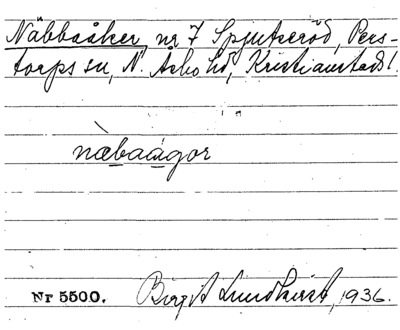 Näbbaåker, nr 7 Spjutseröd, Pers-
torps sn, N. Åsbo hd, Kristianstads l.
næbaågor
Nr 5500. Birgit Lundkvist, 1936.